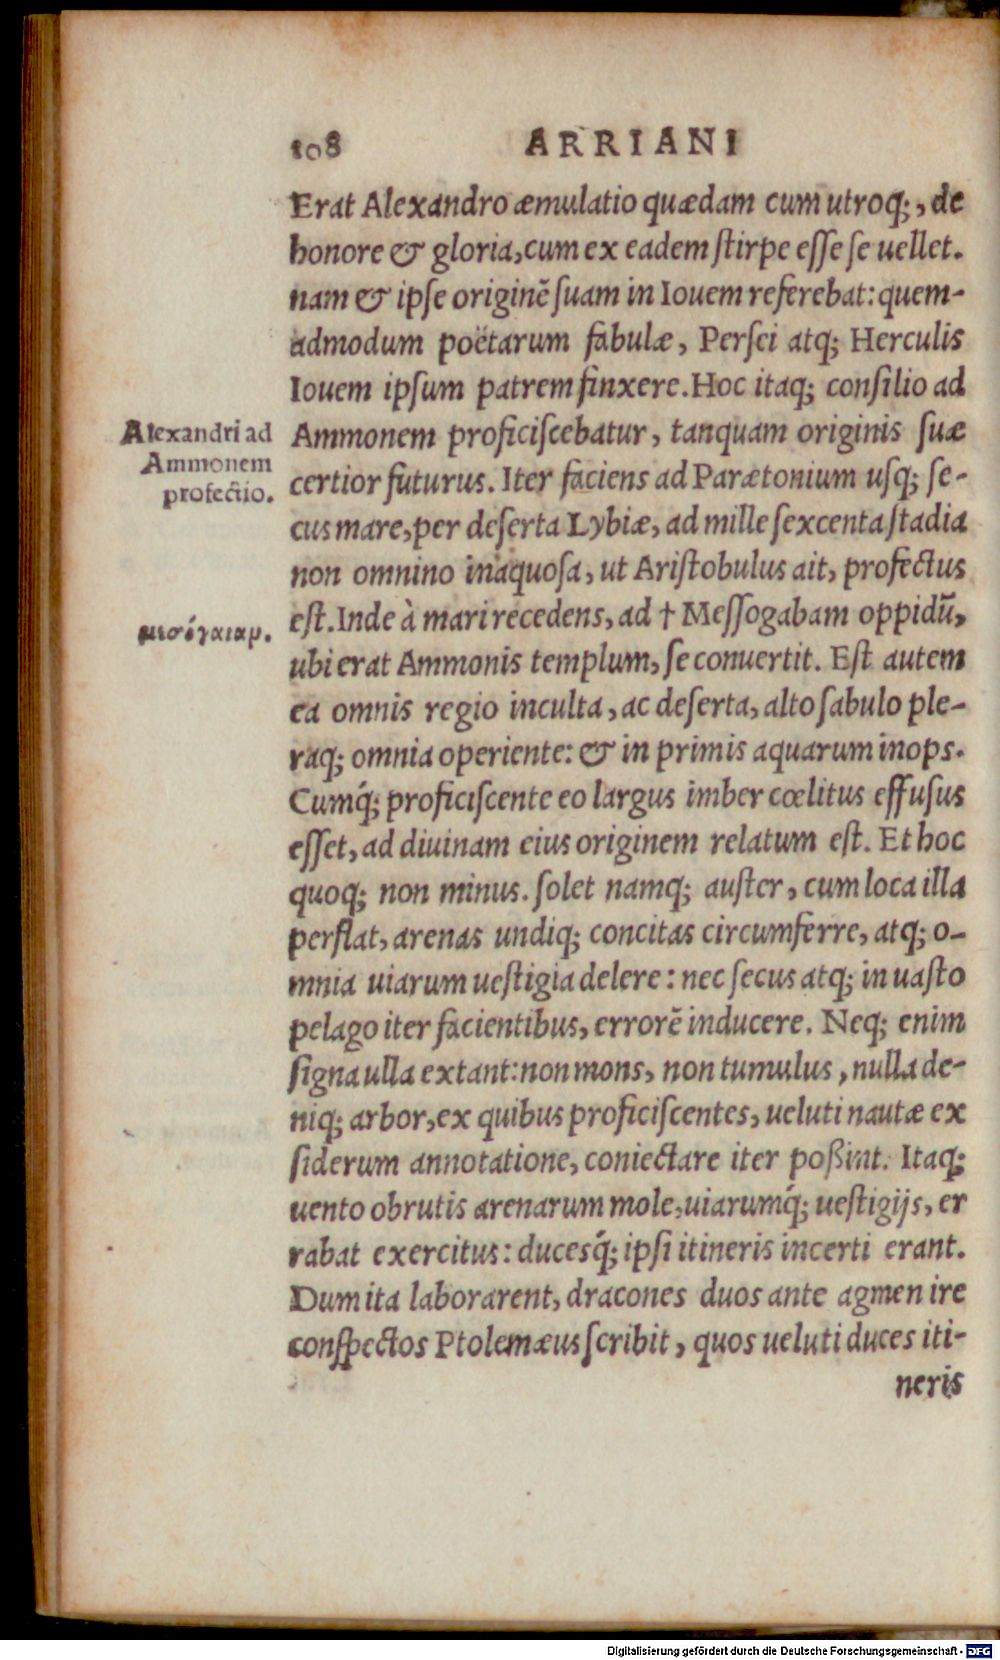 108 ARRIANI
Erat Alexandro æmulatio quædam cum utroq;, de
honore & gloria, cum ex eadem stirpe esse se uellet.
nam & ipse originẽ suam in Iouem referebat: quem-
admodum poëtarum fabulæ, Persei atq; Herculis
Iouem ipsum patrem finxere. Hoc itaq; consilio ad
Alexandri ad
Ammonem
profectio.
Ammonem proficiscebatur, tanquam originis suæ
certior futurus. Iter faciens ad Parætonium usq; se-
cus mare, per deserta Lybiæ, ad mille sexcenta stadia
non omnino inaquosa, ut Aristobulus ait, profectus
est. Inde à mari recedens, ad † Messogabam oppidũ,
μισόγαιαμ.
ubi erat Ammonis templum, se conuertit. Est autem
ea omnis regio inculta, ac deserta, alto sabulo ple-
raq; omnia operiente: & in primis aquarum inops.
Cumq́; proficiscente eo largus imber cœlitus effusus
esset, ad diuinam eius originem relatum est. Et hoc
quoq; non minus. solet namq; auster, cum loca illa
perflat, arenas undiq; concitas circumferre, atq; o-
mnia uiarum uestigia delere: nec secus atq; in uasto
pelago iter facientibus, errorẽ inducere. Neq; enim
signa ulla extant: non mons, non tumulus, nulla de-
niq; arbor, ex quibus proficiscentes, ueluti nautæ ex
siderum annotatione, coniectare iter poßint. Itaq;
uento obrutis arenarum mole, uiarumq́; uestigijs, er
rabat exercitus: ducesq́; ipsi itineris incerti erant.
Dum ita laborarent, dracones duos ante agmen ire
conspectos Ptolemæus scribit, quos ueluti duces iti-
neris
Digitalisierung gefördert durch die Deutsche Forschungsgemeinschaft - DFG